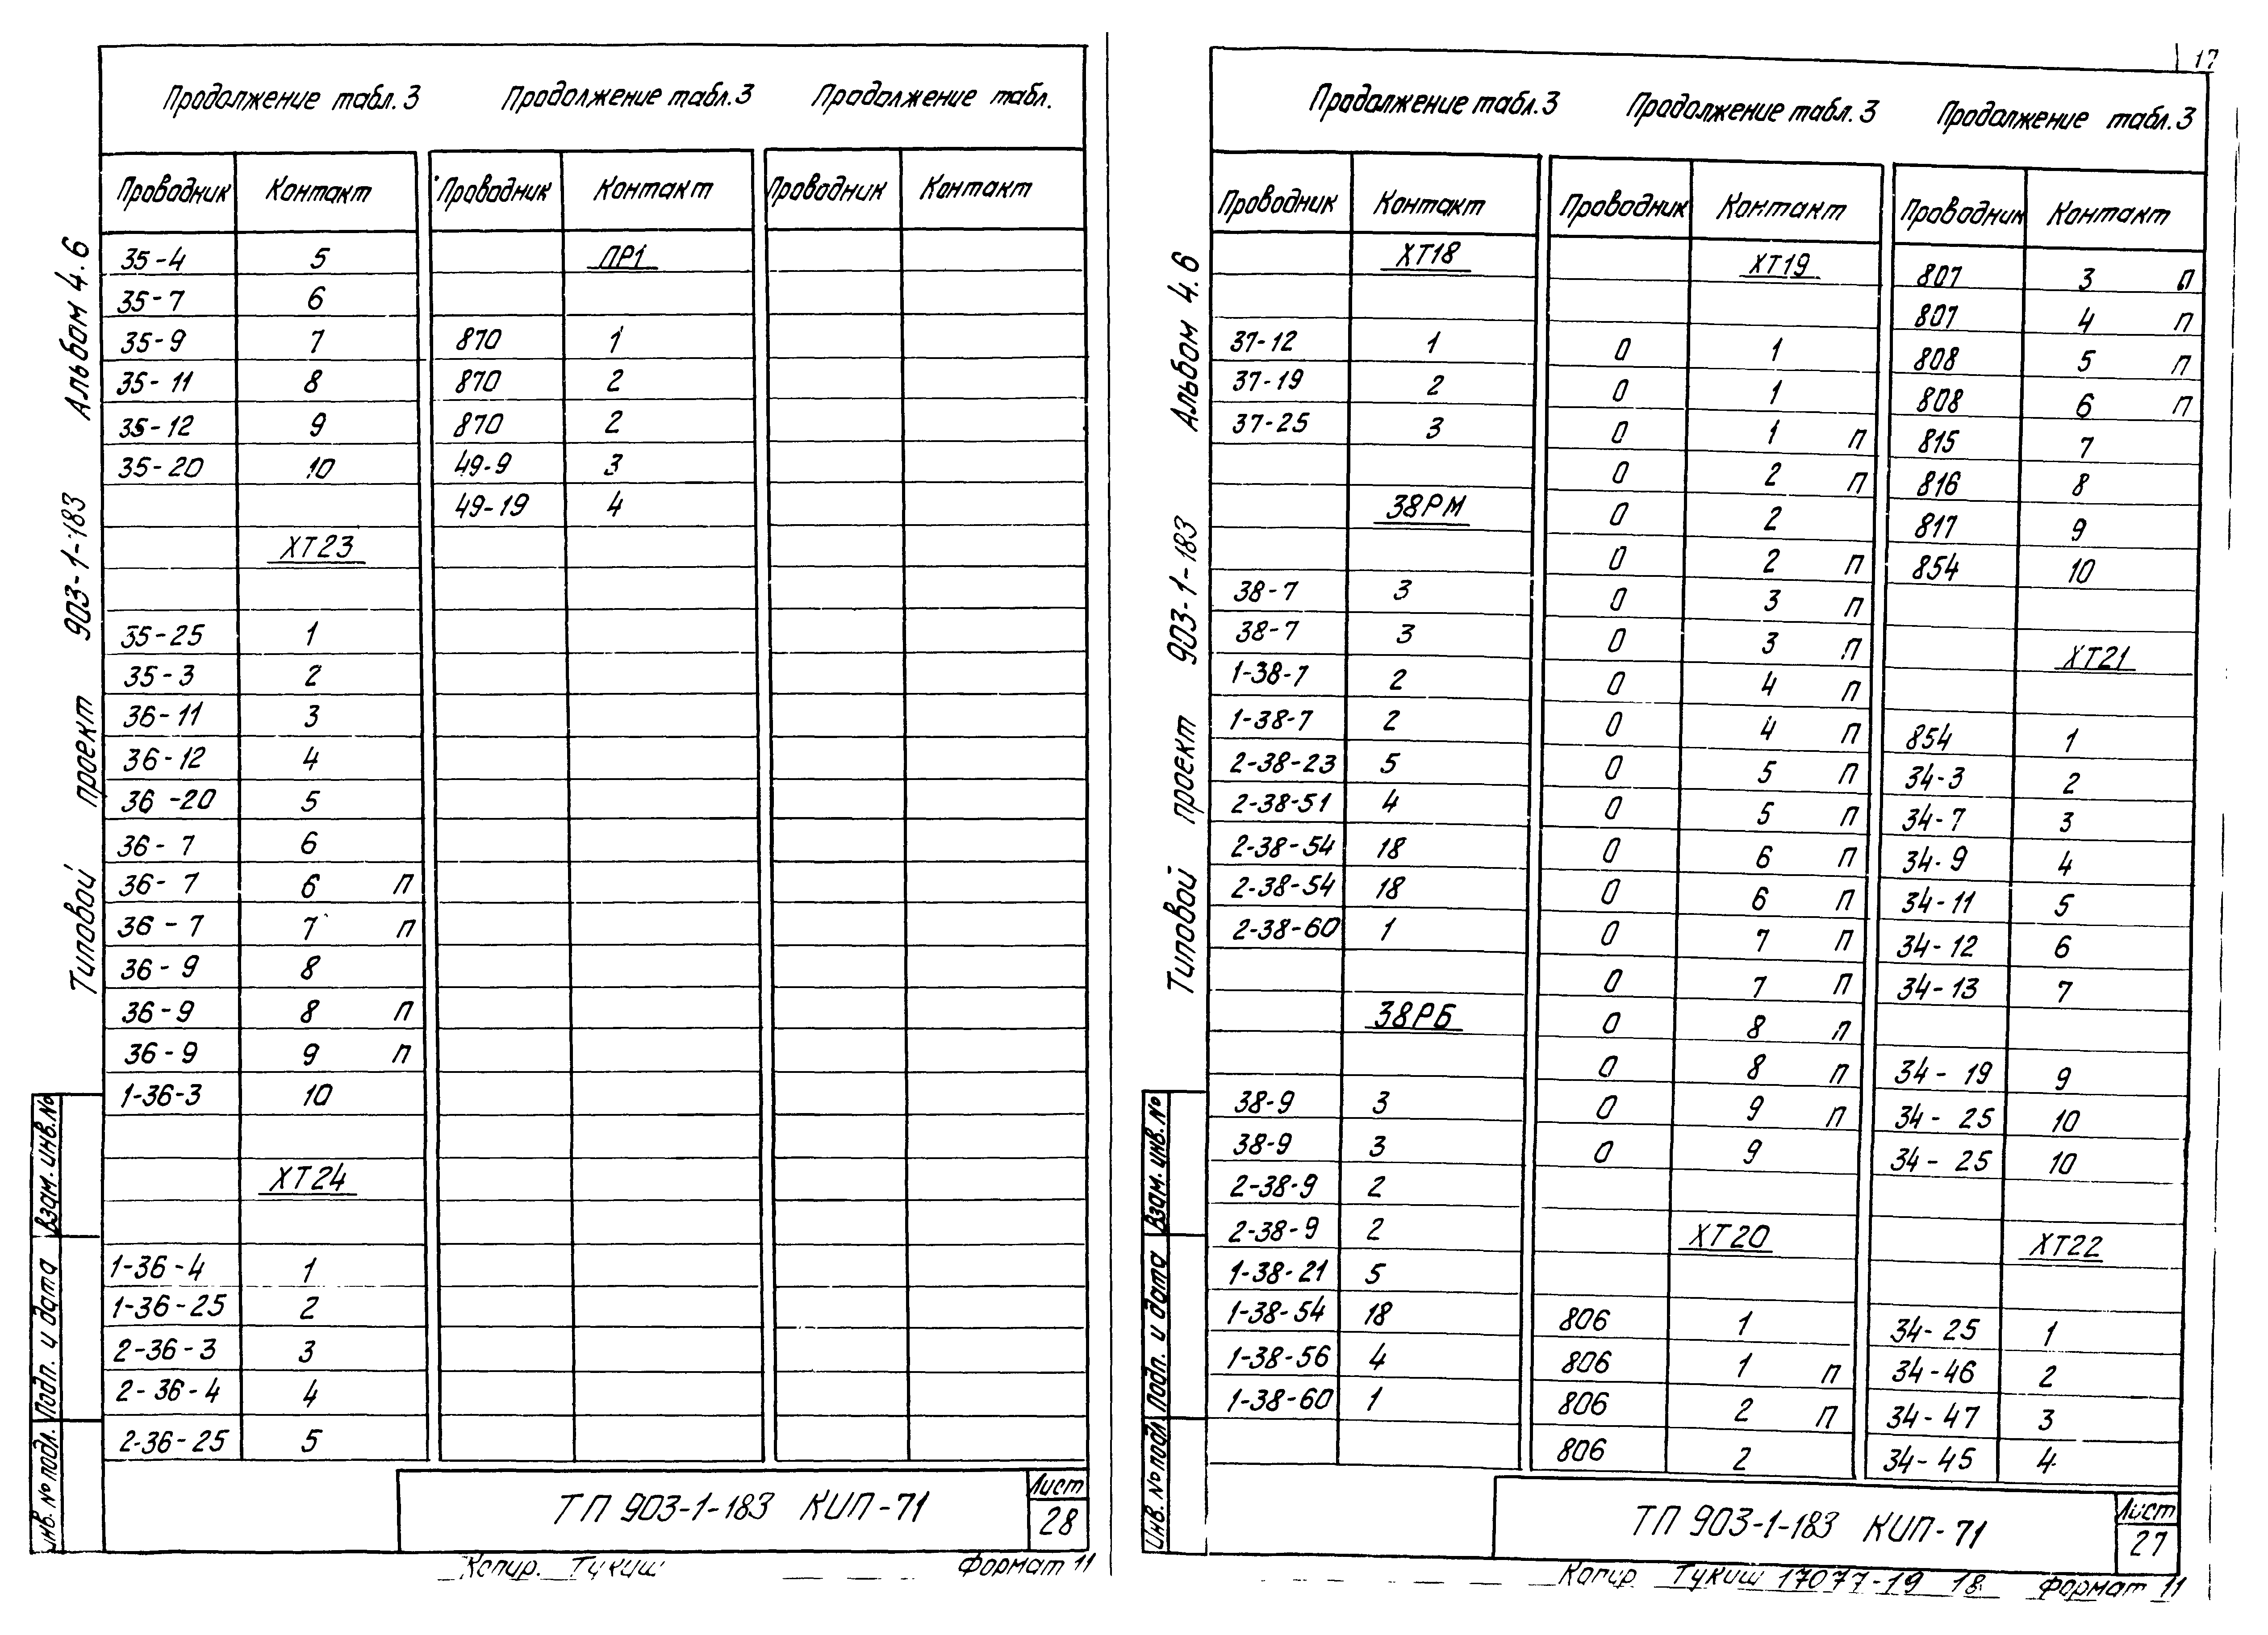 17
Продолжение табл.3 Продолжение табл.3 Продолжение табл.
Проводник Контакт Проводник Контакт Проводник Контакт
35-4 5 ПР1
35-7 6
35-9 7 870 1
35-11 8 870 2
35-12 9 870 2
35-20 10 49-9 3
49-19 4
ХТ23
35-25 1
35-3 2
36-11 3
36-12 4
36-20 5
36-7 6
36-7 6 П
36-7 7 П
36-9 8
36-9 8 П
36-9 9 П
1-36-3 10
ХТ24
1-36-4 1
1-36-25 2
2-36-3 3
2-36-4 4
2-36-25 5
Типовой проект 903-1-183 Альбом 4.6
Взам. инв.№
Подп. и дата
Инв. № подл.
ТП 903-1-183 КИП-71
Лист
28
Копир. Тукиш Формат 11
Продолжение табл.3 Продолжение табл.3 Продолжение табл.3
Проводник Контакт Проводник Контакт Проводник Контакт
ХТ18 ХТ19 807 3 П
807 4 П
37-12 1 0 1 808 5 П
37-19 2 0 1 808 6 П
37-25 3 0 1 П 815 7
0 2 П 816 8
38РМ 0 2 817 9
0 2 П 854 10
38-7 3 0 3 П
38-7 3 0 3 П ХТ21
1-38-7 2 0 4 П
1-38-7 2 0 4 П 854 1
2-38-23 5 0 5 П 34-3 2
2-38-51 4 0 5 П 34-7 3
2-38-54 18 0 6 П 34-9 4
2-38-54 18 0 6 П 34-11 5
2-38-60 1 0 7 П 34-12 6
0 7 П 34-13 7
38РБ 0 8 П
0 8 П 34-19 9
38-9 3 0 9 П 34-25 10
38-9 3 0 9 34-25 10
2-38-9 2
2-38-9 2 ХТ20 ХТ22
1-38-21 5
1-38-54 18 806 1 34-25 1
1-38-56 4 806 1 П 34-46 2
1-38-60 1 806 2 П 34-47 3
806 2 34-45 4
Типовой проект 903-1-183 Альбом 4.6
Взам. инв. №
Подп. и дата
Инв. № подл.
ТП 903-1-183 КИП-71
Лист
27
Копир Тукиш 17077-19 18 Формат 11